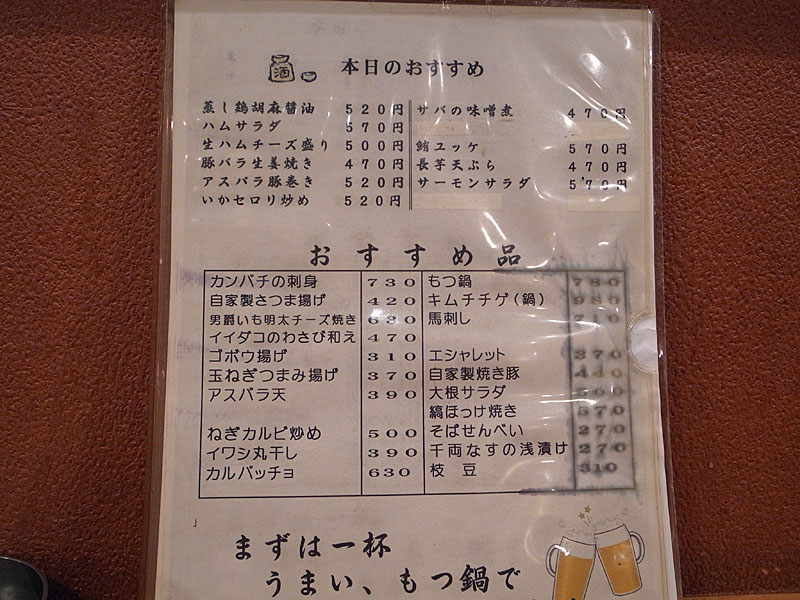 酒
本日のおすすめ
蒸し鶏胡麻醤油 520円
ハムサラダ 570円
生ハムチーズ盛り 500円
豚バラ生姜焼き 470円
アスパラ豚巻き 520円
いかセロリ炒め 520円
サバの味噌煮 470円
鮪ユッケ 570円
長芋天ぷら 470円
サーモンサラダ 570円
おすすめ品
カンパチの刺身 730
自家製さつま揚げ 420
男爵いも明太チーズ焼き 630
イイダコのわさび和え 470
ゴボウ揚げ 310
玉ねぎつまみ揚げ 370
アスパラ天 390
ねぎカルビ炒め 500
イワシ丸干し 390
カルパッチョ 630
もつ鍋 780
キムチチゲ(鍋) 980
馬刺し 710
エシャレット 370
自家製焼き豚 440
大根サラダ
縞ほっけ焼き 570
そばせんべい 270
千両なすの浅漬け 270
枝豆 310
まずは一杯
うまい、もつ鍋で